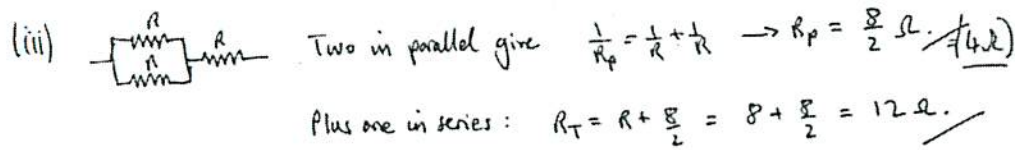 (iii) R R R Two in parallel give 1/Rp = 1/R + 1/R → Rp = 8/2 Ω. (4Ω)
Plus one in series : RT = R + 8/2 = 8 + 8/2 = 12 Ω.